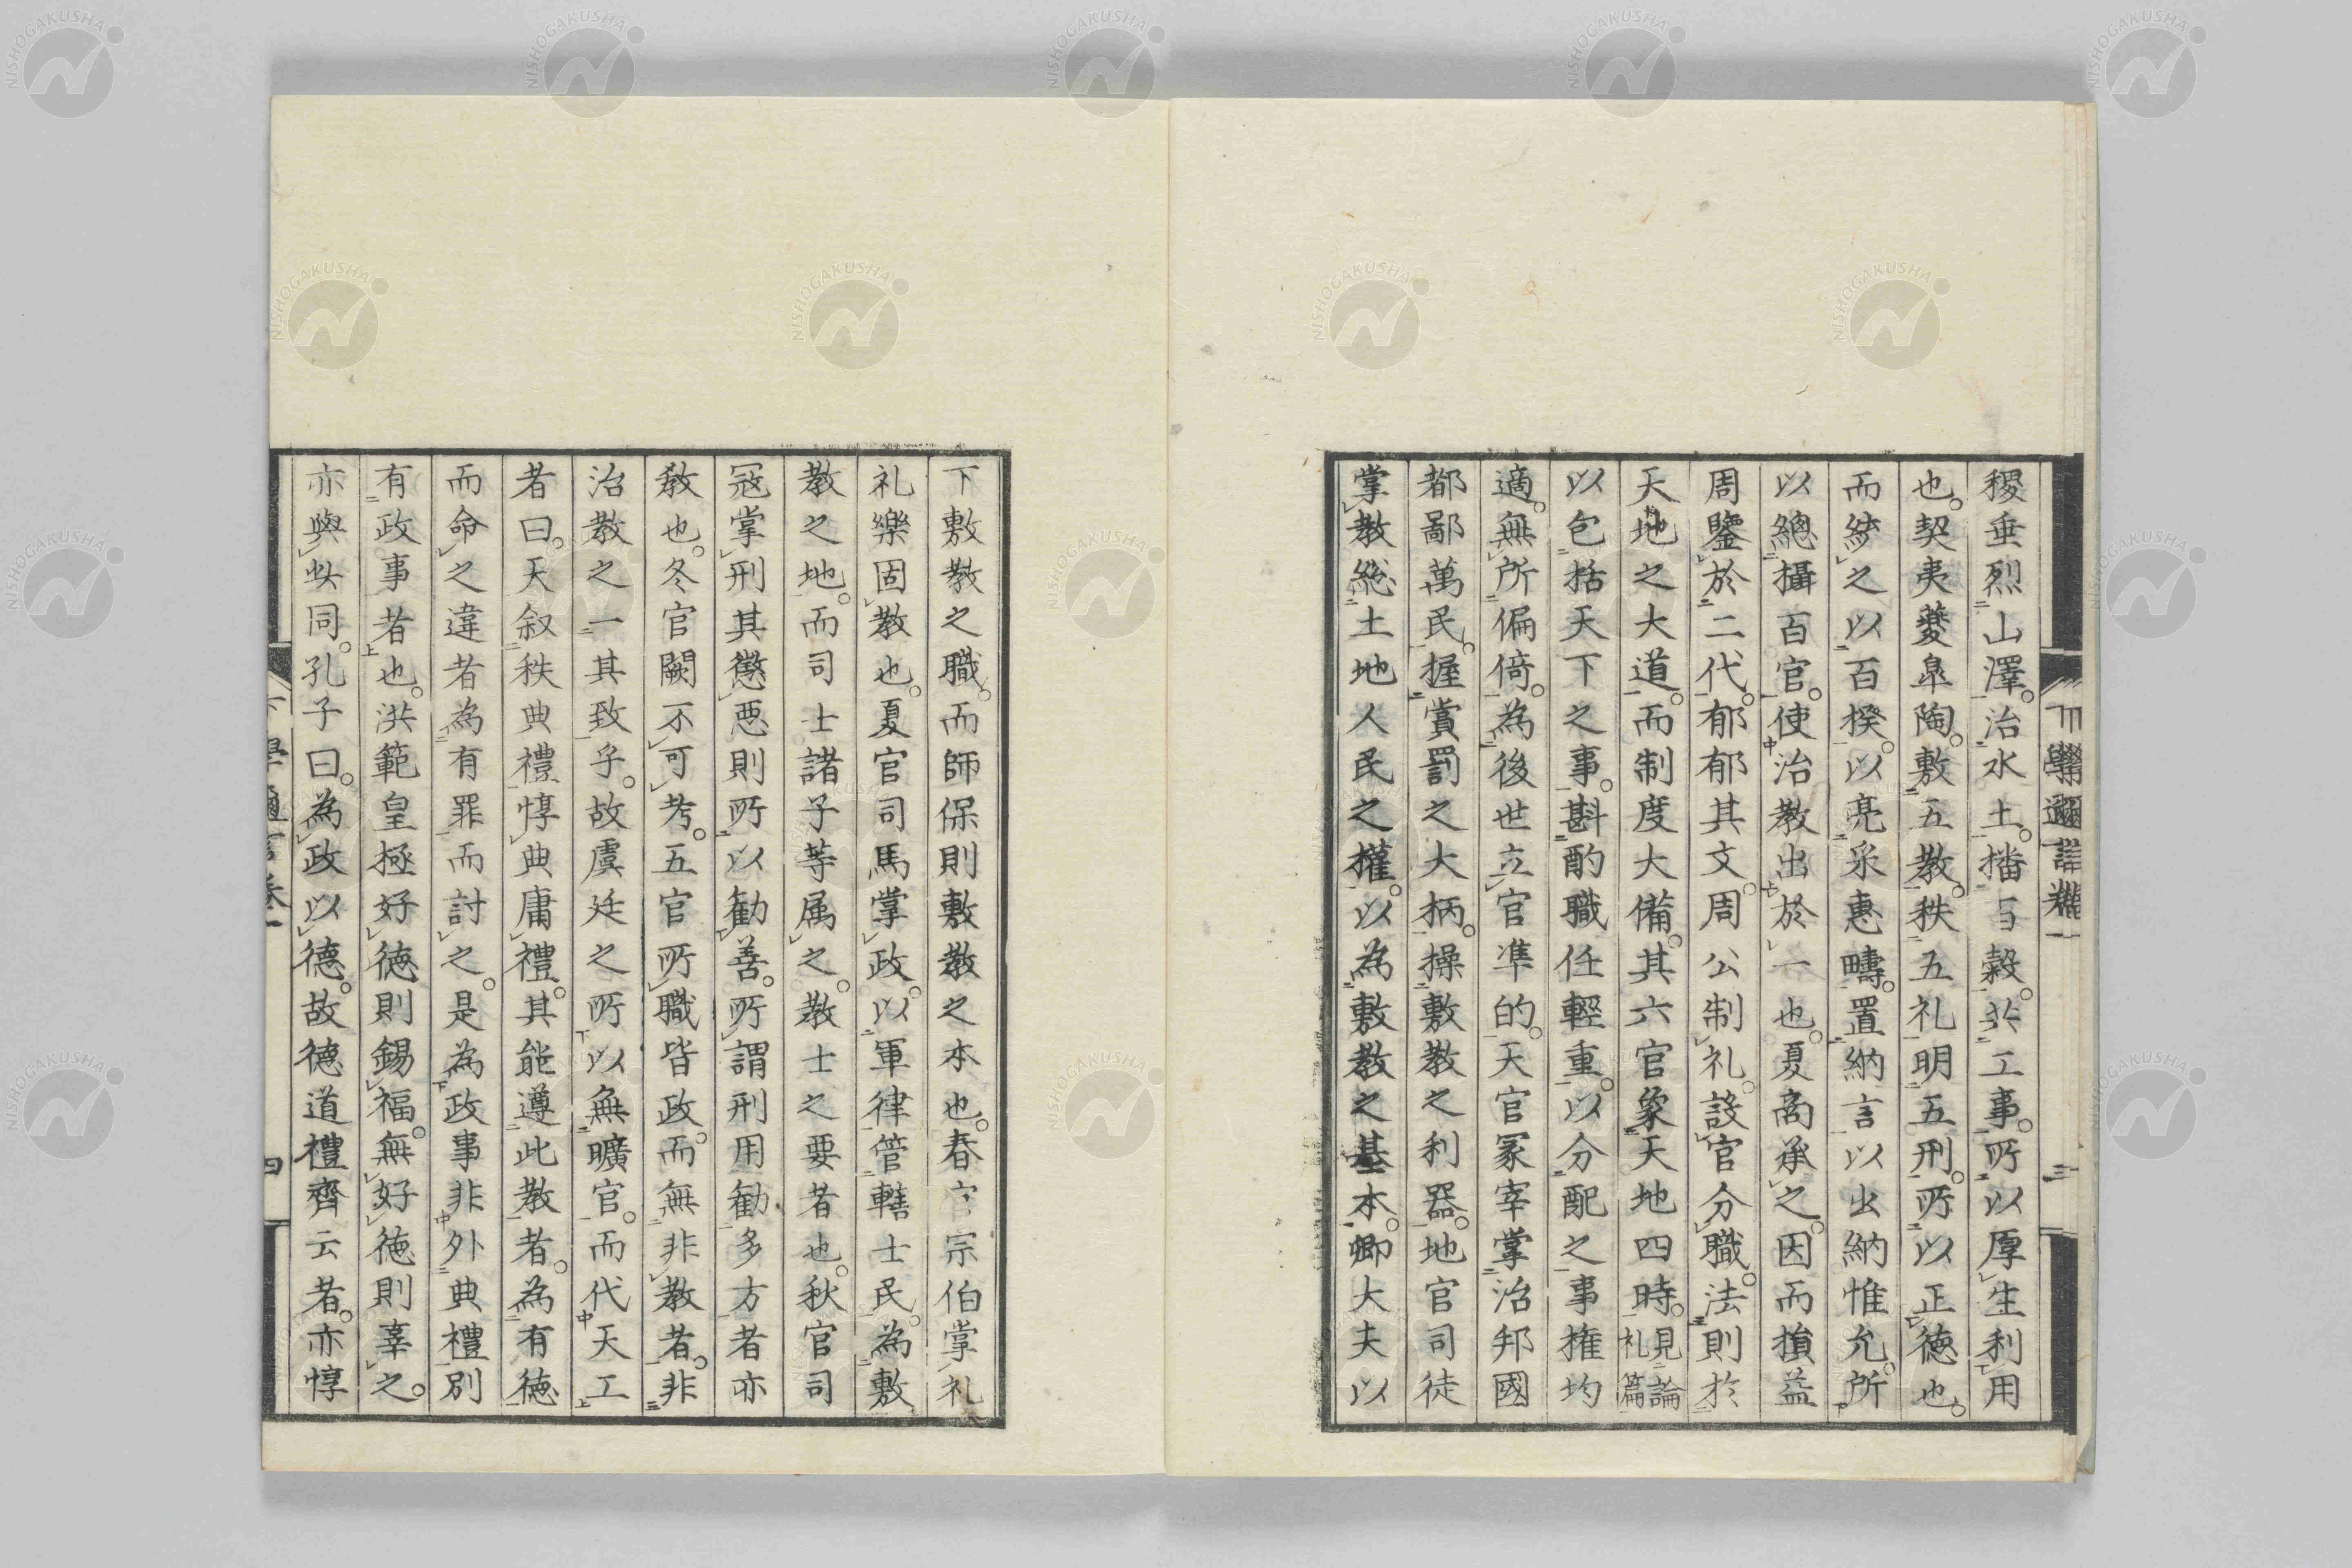 稷垂烈山澤。治水土。播百穀。共工事。所以厚生利用
也。契夷夔皐陶。敷五教。秩五礼。明五刑。所以正德也。
而統之以百揆。以亮采惠疇。置納言以出納惟允。所
以總攝百官。使治教出於一也。夏商承之。因而損益
周鑒於二代。郁郁其文。周公制礼。設官分職。法則於
天地之大道。而制度大備。其六官象天地四時。見論礼篇
以包括天下之事。斟酌職任輕重。以分配之事権均
適。無所偏倚。為後世立官準的。天官冢宰掌治邦國
都鄙萬民。握賞罰之大柄。操敷教之利器。地官司徒
掌教総土地人民之權。以為敷教之基本。卿大夫以
下學邇言卷一
三
下敷教之職。而師保則敷教之本也。春官宗伯掌礼
礼樂固教也。夏官司馬掌政。以軍律管轄士民。為敷
教之地。而司士諸子等属之。教士之要者也。秋官司
冦掌刑其懲惡則所以勸善。所謂刑用勧多方者亦
教也。冬官闕不可考。五官所職皆政。而無非教者。非
治教之一其致乎。故虞廷之所以無曠官。而代天工
者曰。天叙秩典禮惇典庸禮。其能遵此教者。為有德
而命之違者為有罪而討之。是為政事非外典禮別
有政事者也。洪範皇極好徳則錫福。無好徳則辜之。
亦與此同。孔子曰。為政以德。故德道禮齊云者。亦惇
下學邇言卷一
四
NISHOGAKUSHA